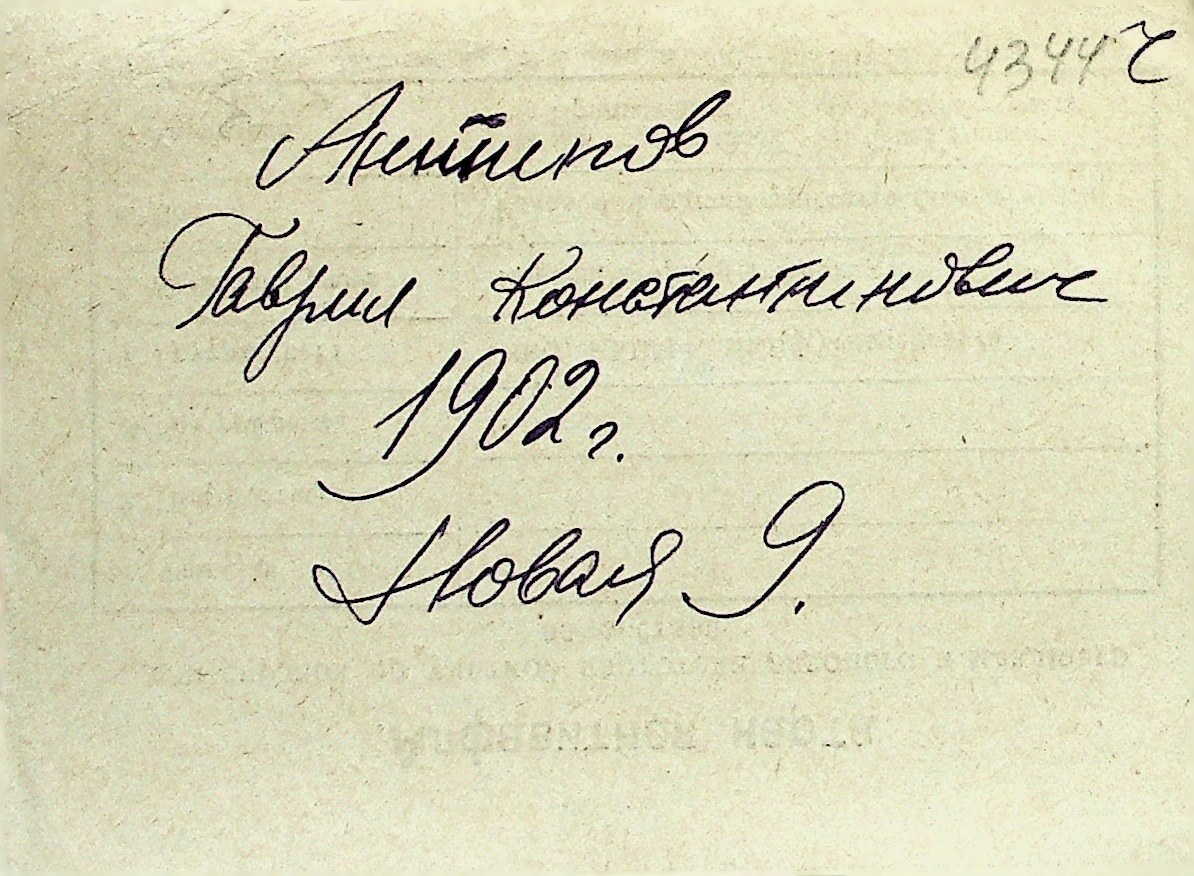 4344 ч
Антипов
Гаврил Константинович
1902 г.
Новая 9.